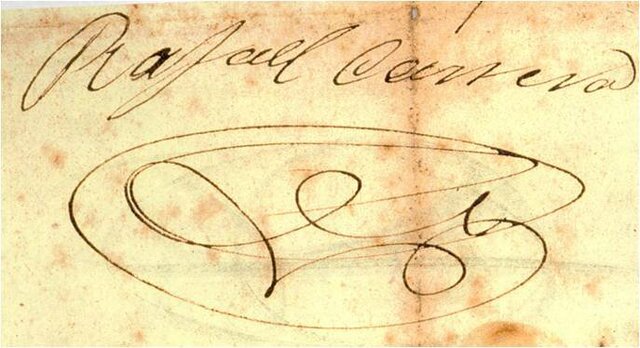 Rafael Carrera